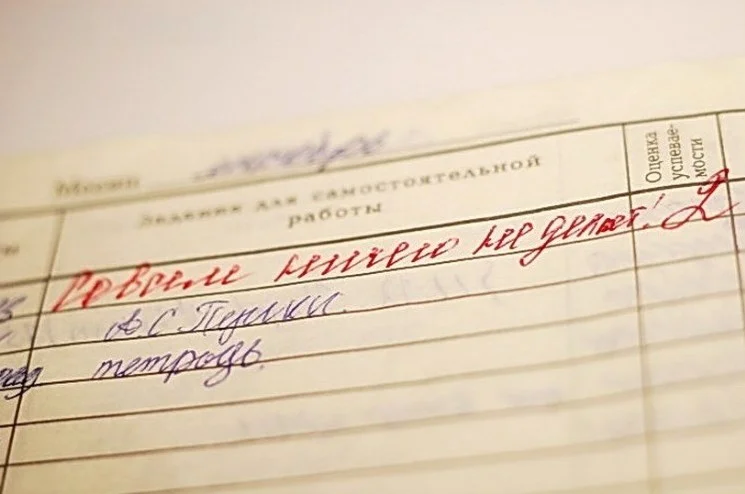 Месяц
Оценка успевае- мости
Задания для самостоятельной
работы
Совсем ничего не делает! 2
А.С. Пушкин.
тетрадь.